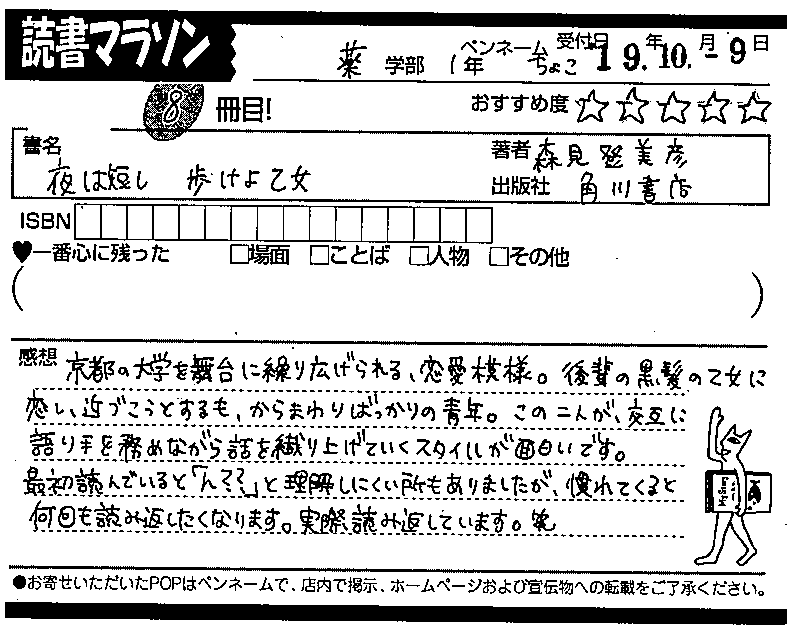 読書マラソン
薬 学部 1年 ペンネーム ちょこ 受付日 19.年10.月-9日
8 冊目!
おすすめ度☆☆☆☆☆
書名 夜は短し 歩けよ乙女
著者 森見登美彦
出版社 角川書店
ISBN
♥一番心に残った □場面 □ことば □人物 □その他
( )
感想 京都の大学を舞台に繰り広げられる、恋愛模様。後輩の黒髪の乙女に
恋し、近づこうとするも、からまわりばっかりの青年。この二人が、交互に
語り手を務めながら話を織り上げていくスタイルが面白いです。
最初読んでいると「ん??」と理解しにくい所もありましたが、慣れてくると
何回も読み返したくなります。実際読み返しています。笑
●お寄せいただいたPOPはペンネームで、店内で掲示、ホームページおよび宣伝物への転載をご了承ください。